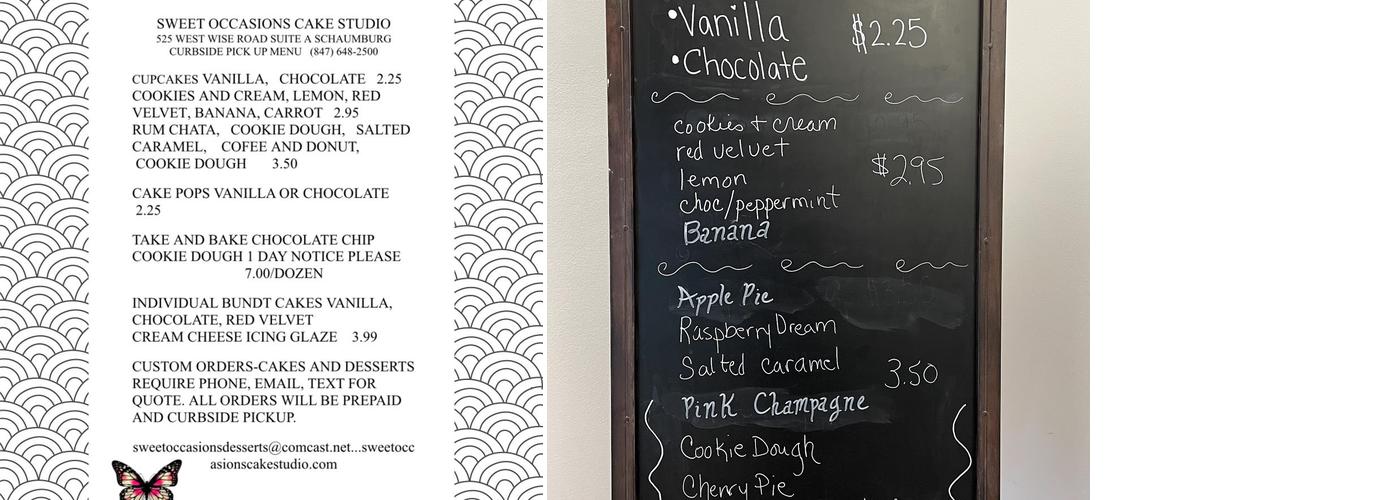 SWEET OCCASIONS CAKE STUDIO
525 WEST WISE ROAD SUITE A SCHAUMBURG
CURBSIDE PICK UP MENU (847) 648-2500
CUPCAKES VANILLA, CHOCOLATE 2.25
COOKIES AND CREAM, LEMON, RED
VELVET, BANANA, CARROT 2.95
RUM CHATA, COOKIE DOUGH, SALTED
CARAMEL, COFEE AND DONUT,
COOKIE DOUGH 3.50
CAKE POPS VANILLA OR CHOCOLATE
2.25
TAKE AND BAKE CHOCOLATE CHIP
COOKIE DOUGH 1 DAY NOTICE PLEASE
7.00/DOZEN
INDIVIDUAL BUNDT CAKES VANILLA,
CHOCOLATE, RED VELVET
CREAM CHEESE ICING GLAZE 3.99
CUSTOM ORDERS-CAKES AND DESSERTS
REQUIRE PHONE, EMAIL, TEXT FOR
QUOTE. ALL ORDERS WILL BE PREPAID
AND CURBSIDE PICKUP.
sweetoccasionsdesserts@comcast.net...sweetocc
asionscakestudio.com
•Vanilla $2.25
•Chocolate
cookies + cream
red velvet
$2.95
lemon
choc/peppermint
Banana
Apple Pie
Raspberry Dream
Salted caramel
3.50
Pink Champagne
Cookie Dough
Cherry Pie